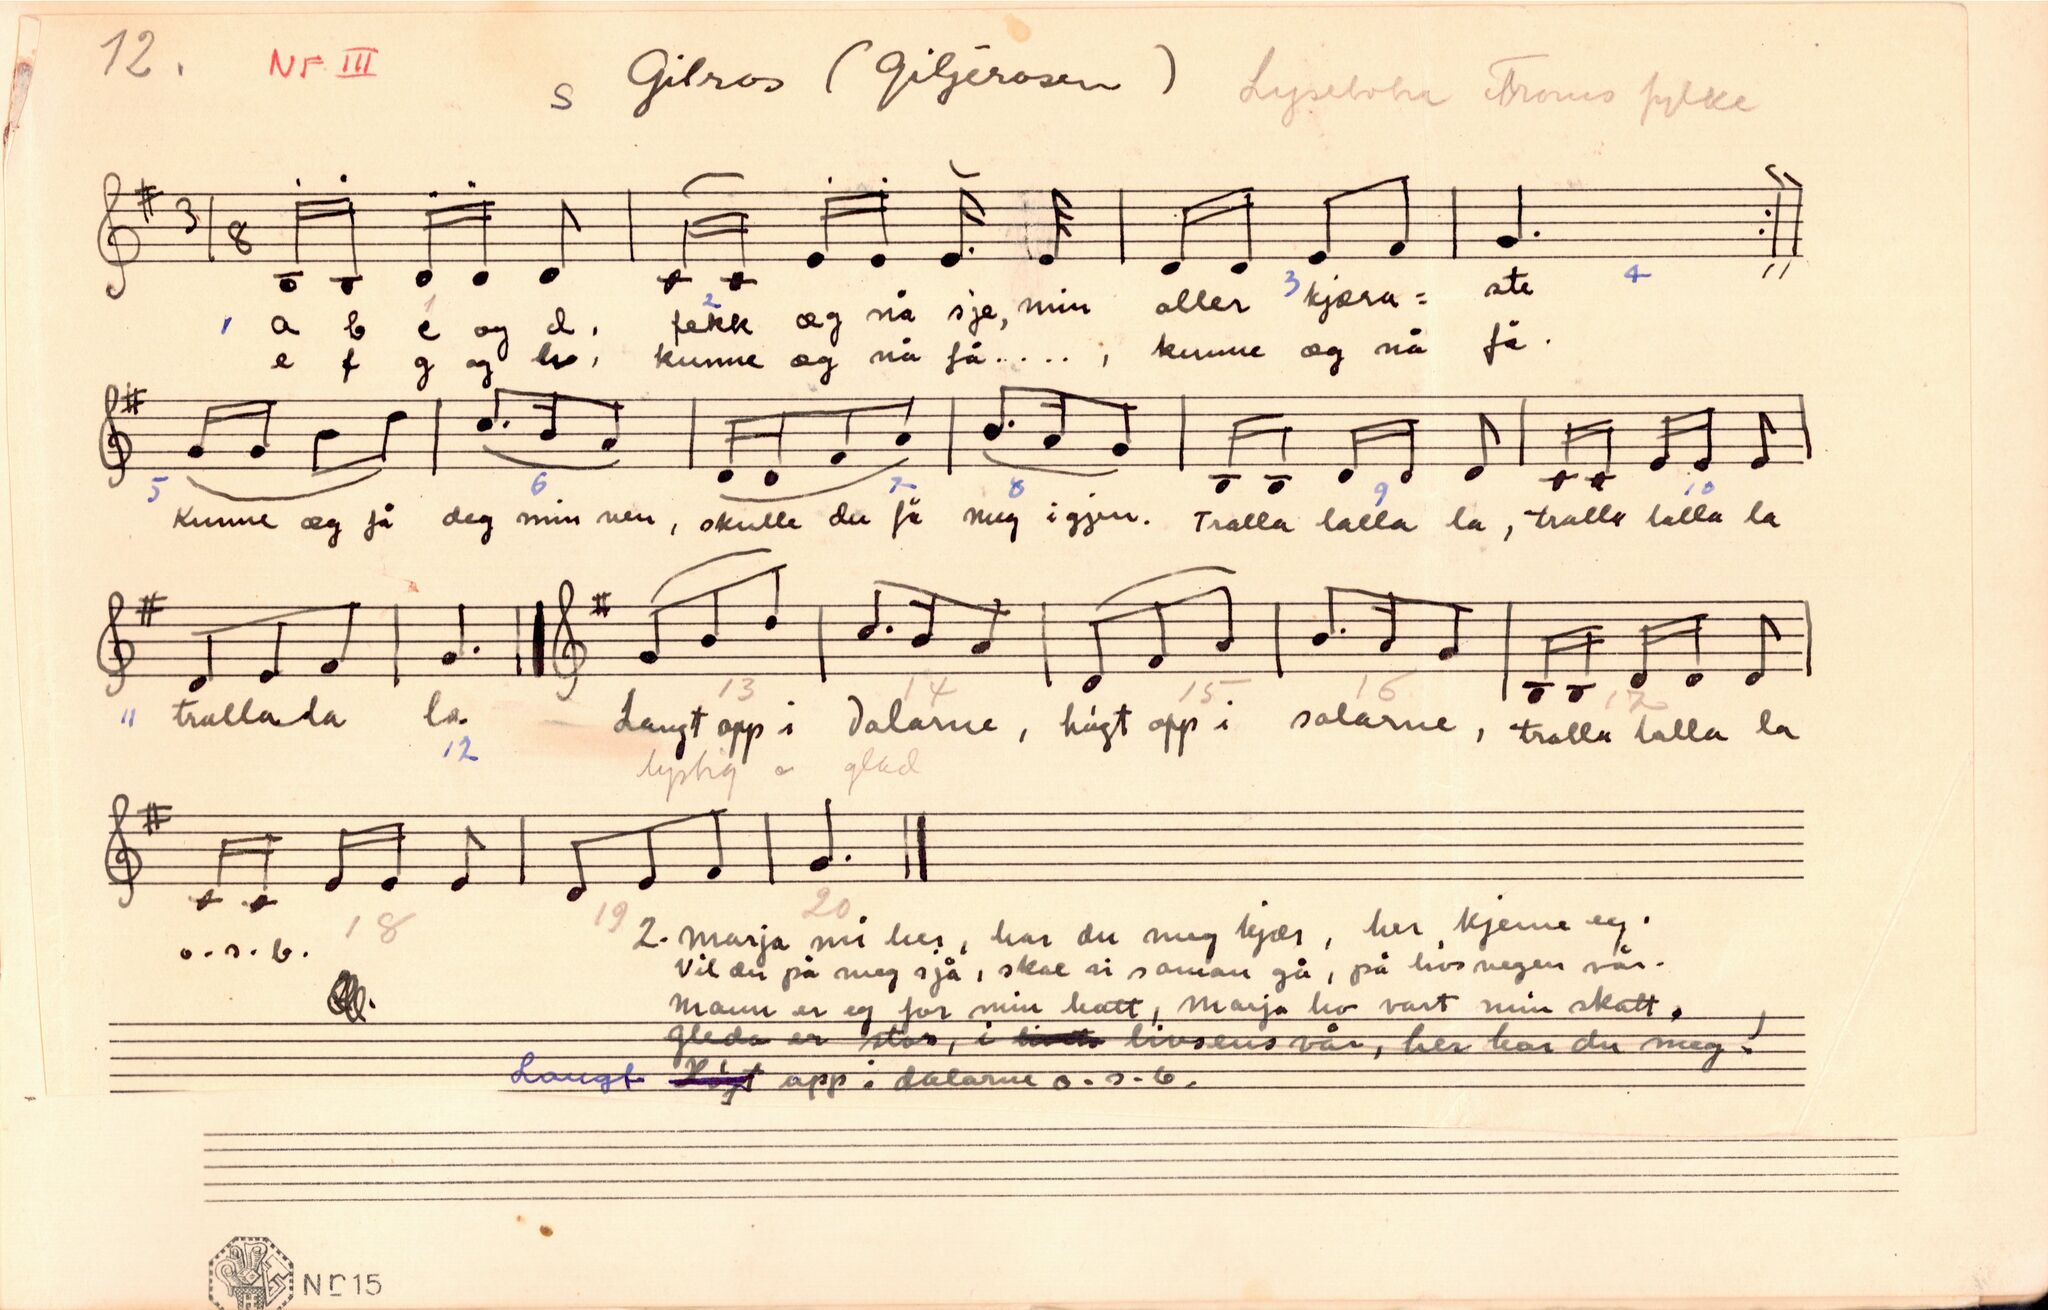 12. Nr III S Gilros (Giljérosen) Troms fylke
3/8
1 2 3 4
1 a b c og d, fekk æg nå sje, min aller kjæra = ste
e f g og h, kunne æg nå få....., kunne æg nå få.
5 6 7 8 9 10
Kunne æg få deg min ven, skulle du få meg igjen. Tralla lalla la, tralla lalla la
13 14 15 16 17
11 tralla la la. Langt opp i dalarne, högt opp i salarne, tralla lalla la
12 lystig o glad
18 19 20
o.s.b. 2. Marja mi her, har du meg kjær, her kjeme eg.
Vil du på meg sjå, skal vi saman gå, på livsvegen vår.
Mann er eg for min hatt, Marja ho vart min skatt,
gleda er stor, i livsens vår, her har du meg!
Langt opp i dalarne o.s.b.
Nr 15